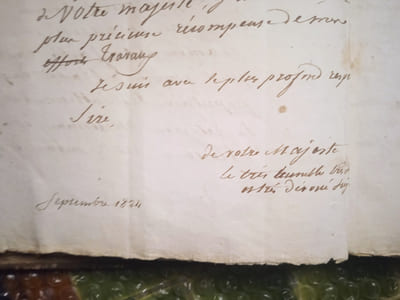 de Votre majesté,
plus précieuse récompense de mes
efforts Travaux
Je suis avec le plus profond resp
Sire,
de votre Majesté
le très humble
et très dévoué
Septembre 1824